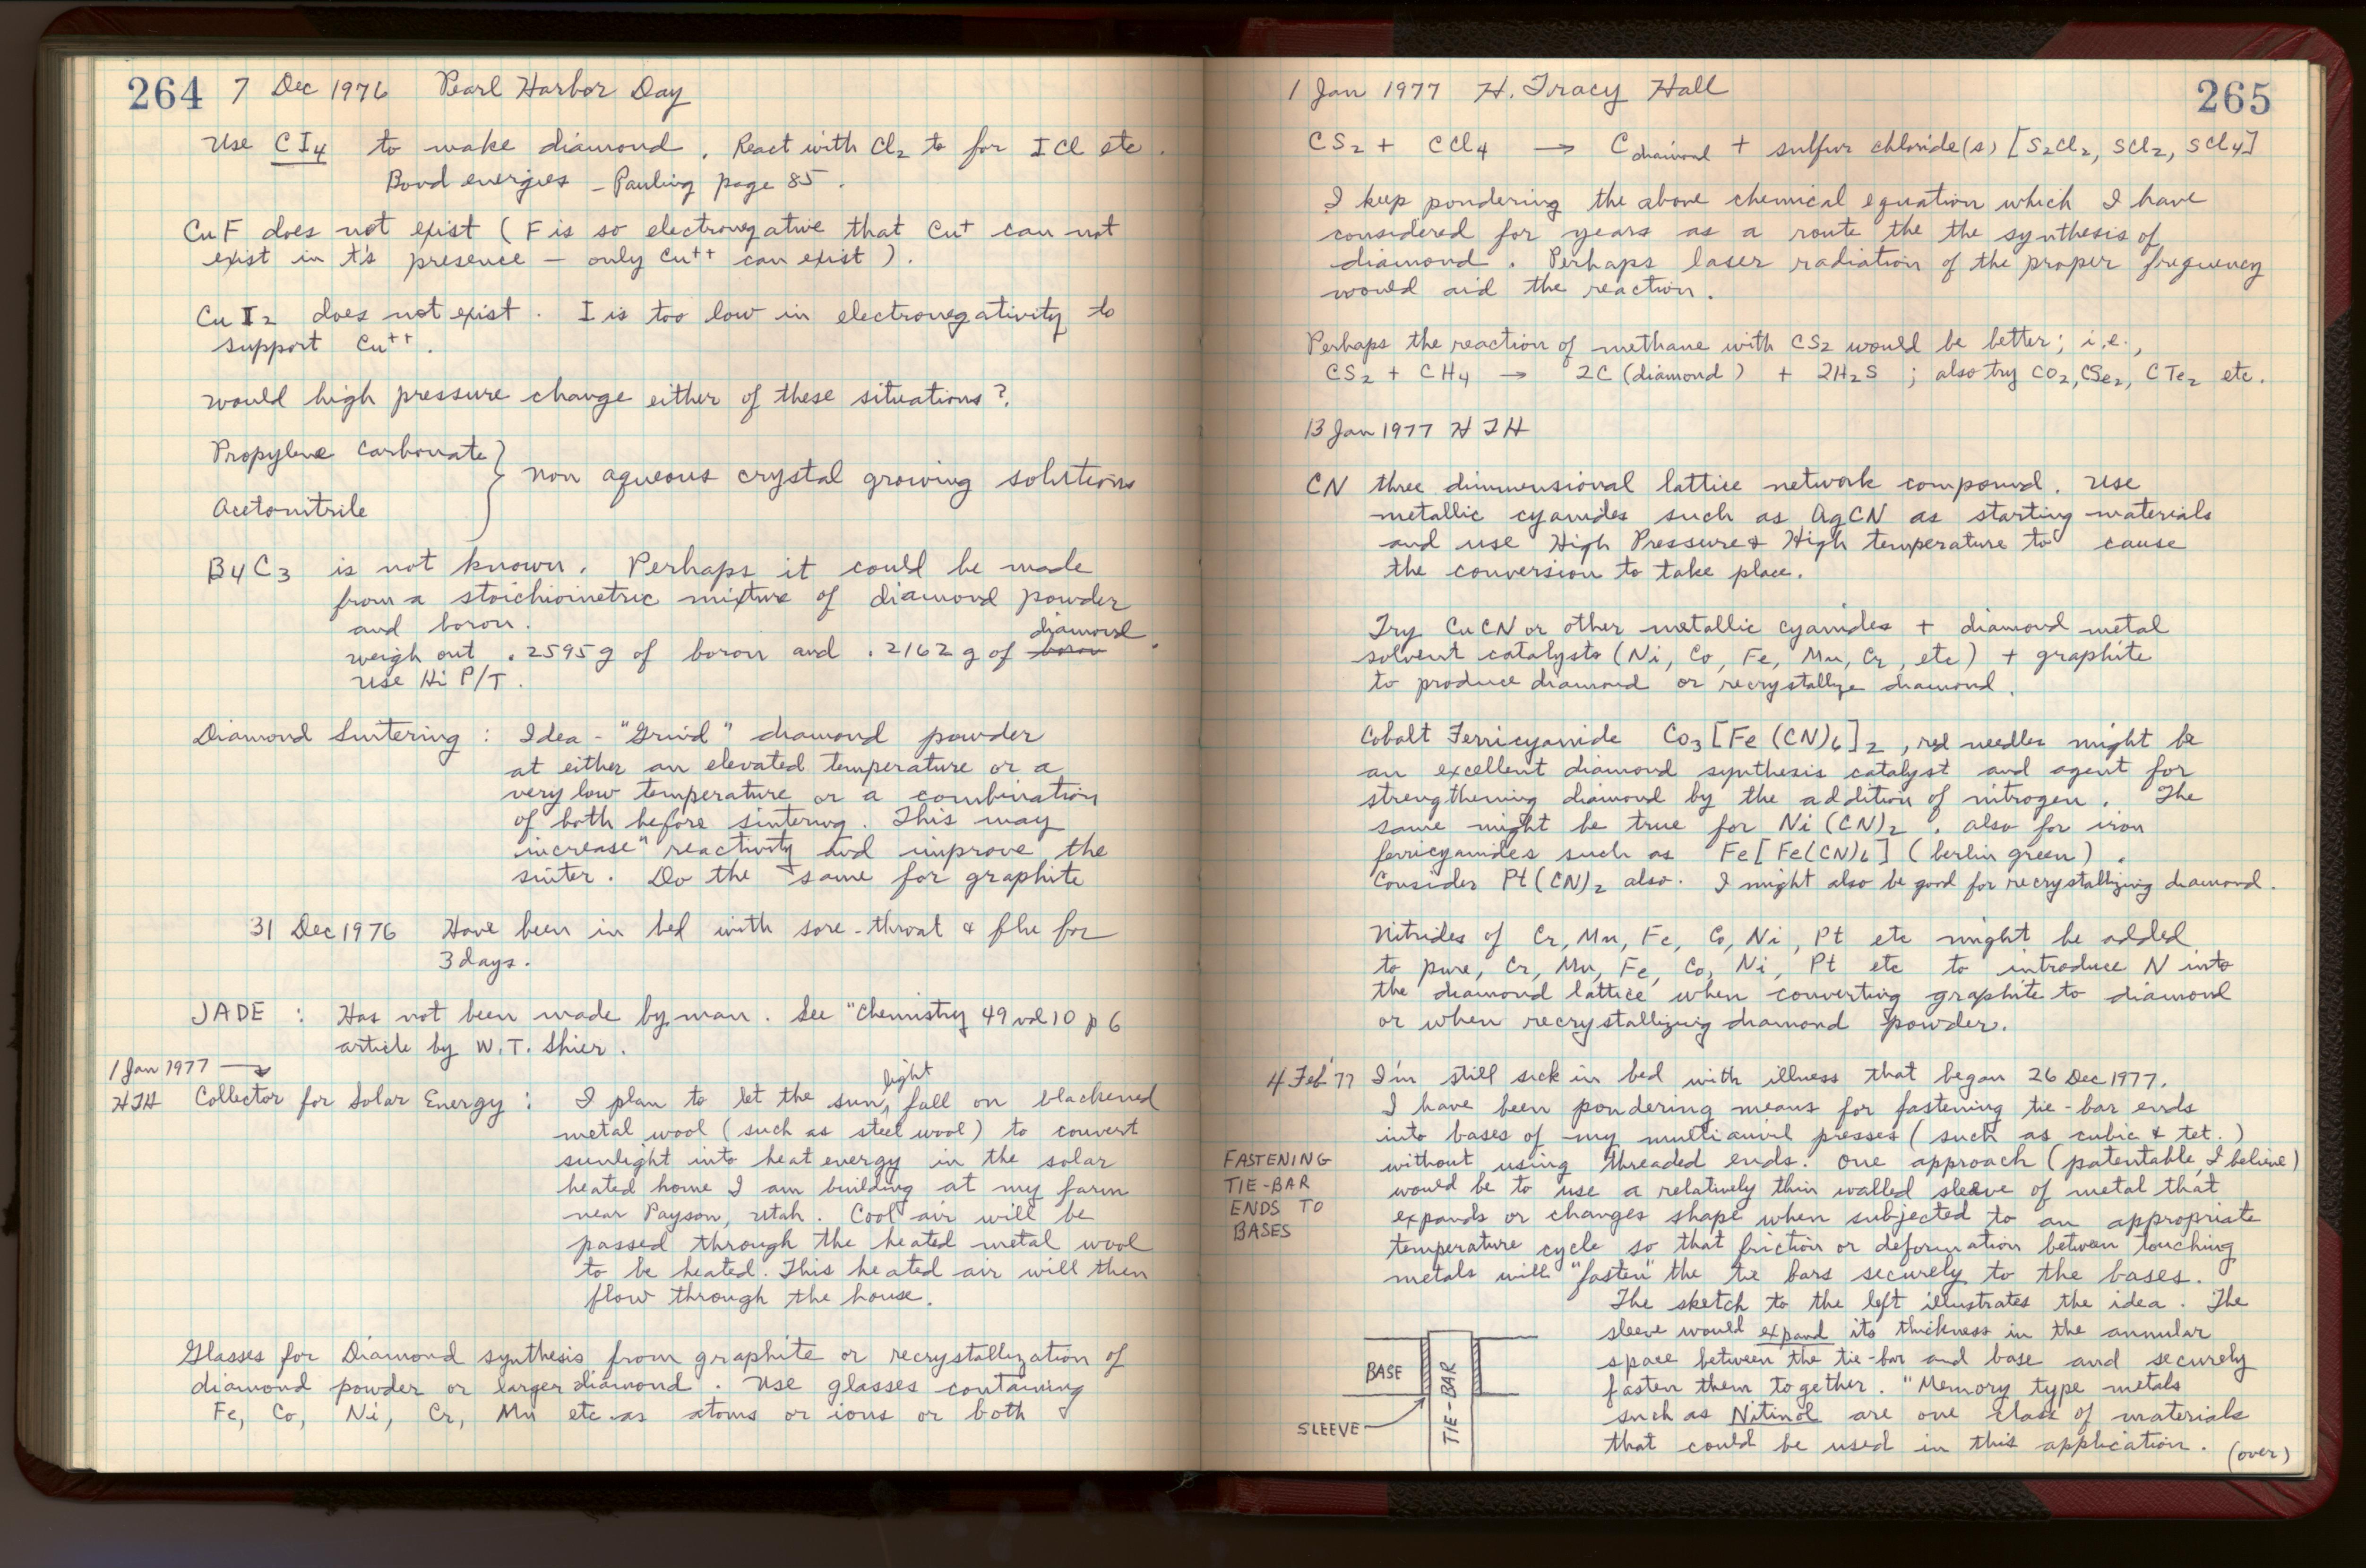 264 7 Dec 1976 Pearl Harbor Day
Use CI4 to make diamond. React with Cl2 to for ICl etc.
Bond energies - Pauling page 85.
CuF does not exist (F is so electronegative that Cu+ can not
exist in t's presence - only Cu++ can exist).
CuI2 does not exist. I is too low in electronegativity to
support Cu++.
Would high pressure change either of these situations?
Propylene Carbonate
Acetonitrile
} non aqueous crystal growing solutions
B4C3 is not known. Perhaps it could be made
from a stoichiometric mixture of diamond powder
and boron.
diamond
weigh out .2595g of boron and .2162g of boron.
Use Hi P/T.
Diamond Sintering: Idea - "Grind" diamond powder
at either an elevated temperature or a
very low temperature or a combination
of both before sintering. This may
increase "reactivity and improve the
sinter. Do the same for graphite
31 Dec 1976 Have been in bed with sore-throat & flu for
3 days.
JADE: Has not been made by man. See "Chemistry 49 vol 10 p 6
article by W.T. Shier.
1 Jan 1977 →
light
HTH Collector for Solar Energy: I plan to let the sun, fall on blackened
metal wool (such as steel wool) to convert
sunlight into heat energy in the solar
heated home I am building at my farm
near Payson, Utah. Cool air will be
passed through the heated metal wool
to be heated. This heated air will then
flow through the house.
Glasses for Diamond synthesis from graphite or recrystallization of
diamond powder or larger diamond. Use glasses containing
Fe, Co, Ni, Cr, Mn etc as atoms or ions or both
1 Jan 1977 H. Tracy Hall 265
CS2 + CCl4 → C diamond + sulfur chloride(s) [S2Cl2, SCl2, SCl4]
I keep pondering the above chemical equation which I have
considered for years as a route the the synthesis of
diamond. Perhaps laser radiation of the proper frequency
would aid the reaction.
Perhaps the reaction of methane with CS2 would be better; i.e.,
CS2 + CH4 → 2C (diamond) + 2H2S; also try CO2, CSe2, CTe2 etc.
13 Jan 1977 HTH
CN three dimmensional lattice network compound. Use
metallic cyanides such as AgCN as starting materials
and use High Pressure & High temperature to cause
the conversion to take place.
Try CuCN or other metallic cyanides + diamond metal
solvent catalysts (Ni, Co, Fe, Mn, Cr, etc) + graphite
to produce diamond or recrystallize diamond.
Cobalt Ferricyanide Co3[Fe(CN)6]2, red needles might be
an excellent diamond synthesis catalyst and agent for
strengthening diamond by the addition of nitrogen. The
same might be true for Ni(CN)2. also for iron
ferricyanides such as Fe[Fe(CN)6] (berlin green).
Consider Pt(CN)2 also. I might also be good for recrystallizing diamond.
Nitrides of Cr, Mn, Fe, Co, Ni, Pt etc might be added
to pure, Cr, Mn, Fe, Co, Ni, Pt etc to introduce N into
the diamond lattice when converting graphite to diamond
or when recrystallizing diamond powder.
4 Feb '77 I'm still sick in bed with illness that began 26 Dec 1977.
I have been pondering means for fastening tie-bar ends
into bases of my multianvil presses (such as cubic & tet.)
FASTENING
TIE-BAR
ENDS TO
BASES
without using threaded ends. One approach (patentable, I believe)
would be to use a relatively thin walled sleeve of metal that
expands or changes shape when subjected to an appropriate
temperature cycle so that friction or deformation between touching
metals will "fasten" the tie bars securely to the bases.
The sketch to the left illustrates the idea. The
sleeve would expand its thickness in the annular
space between the tie-bar and base and securely
fasten them together. "Memory type metals
such as Nitinol are one class of materials
that could be used in this application. (over)
BASE
TIE-BAR
SLEEVE